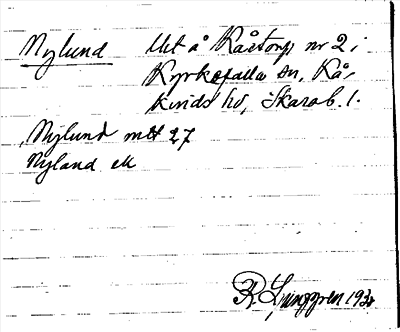 Nylund Utl å Kåstorp nr 2 i
Kyrkefalla sn, Kå-
kinds hd, Skarab. l.
Nylund mtt 27
Nyland ek
R. Ljunggren 193